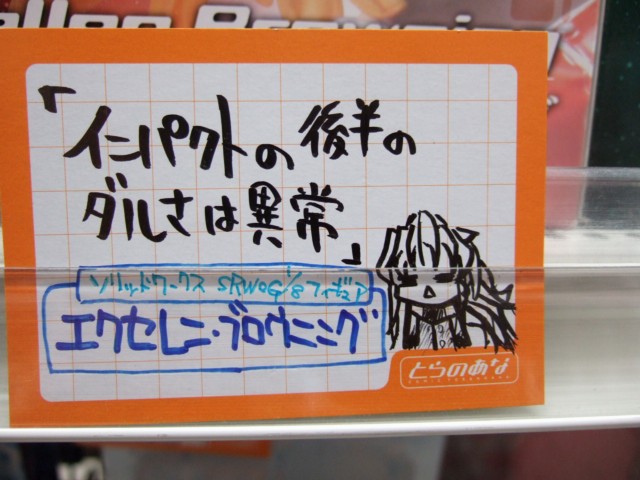 llen Browning
「インパクトの後半の
ダルさは異常」
ソリッドワークス SRWOG 1/8フィギュア
エクセレン・ブロウニング
とらのあな
COMIC TORANOANA